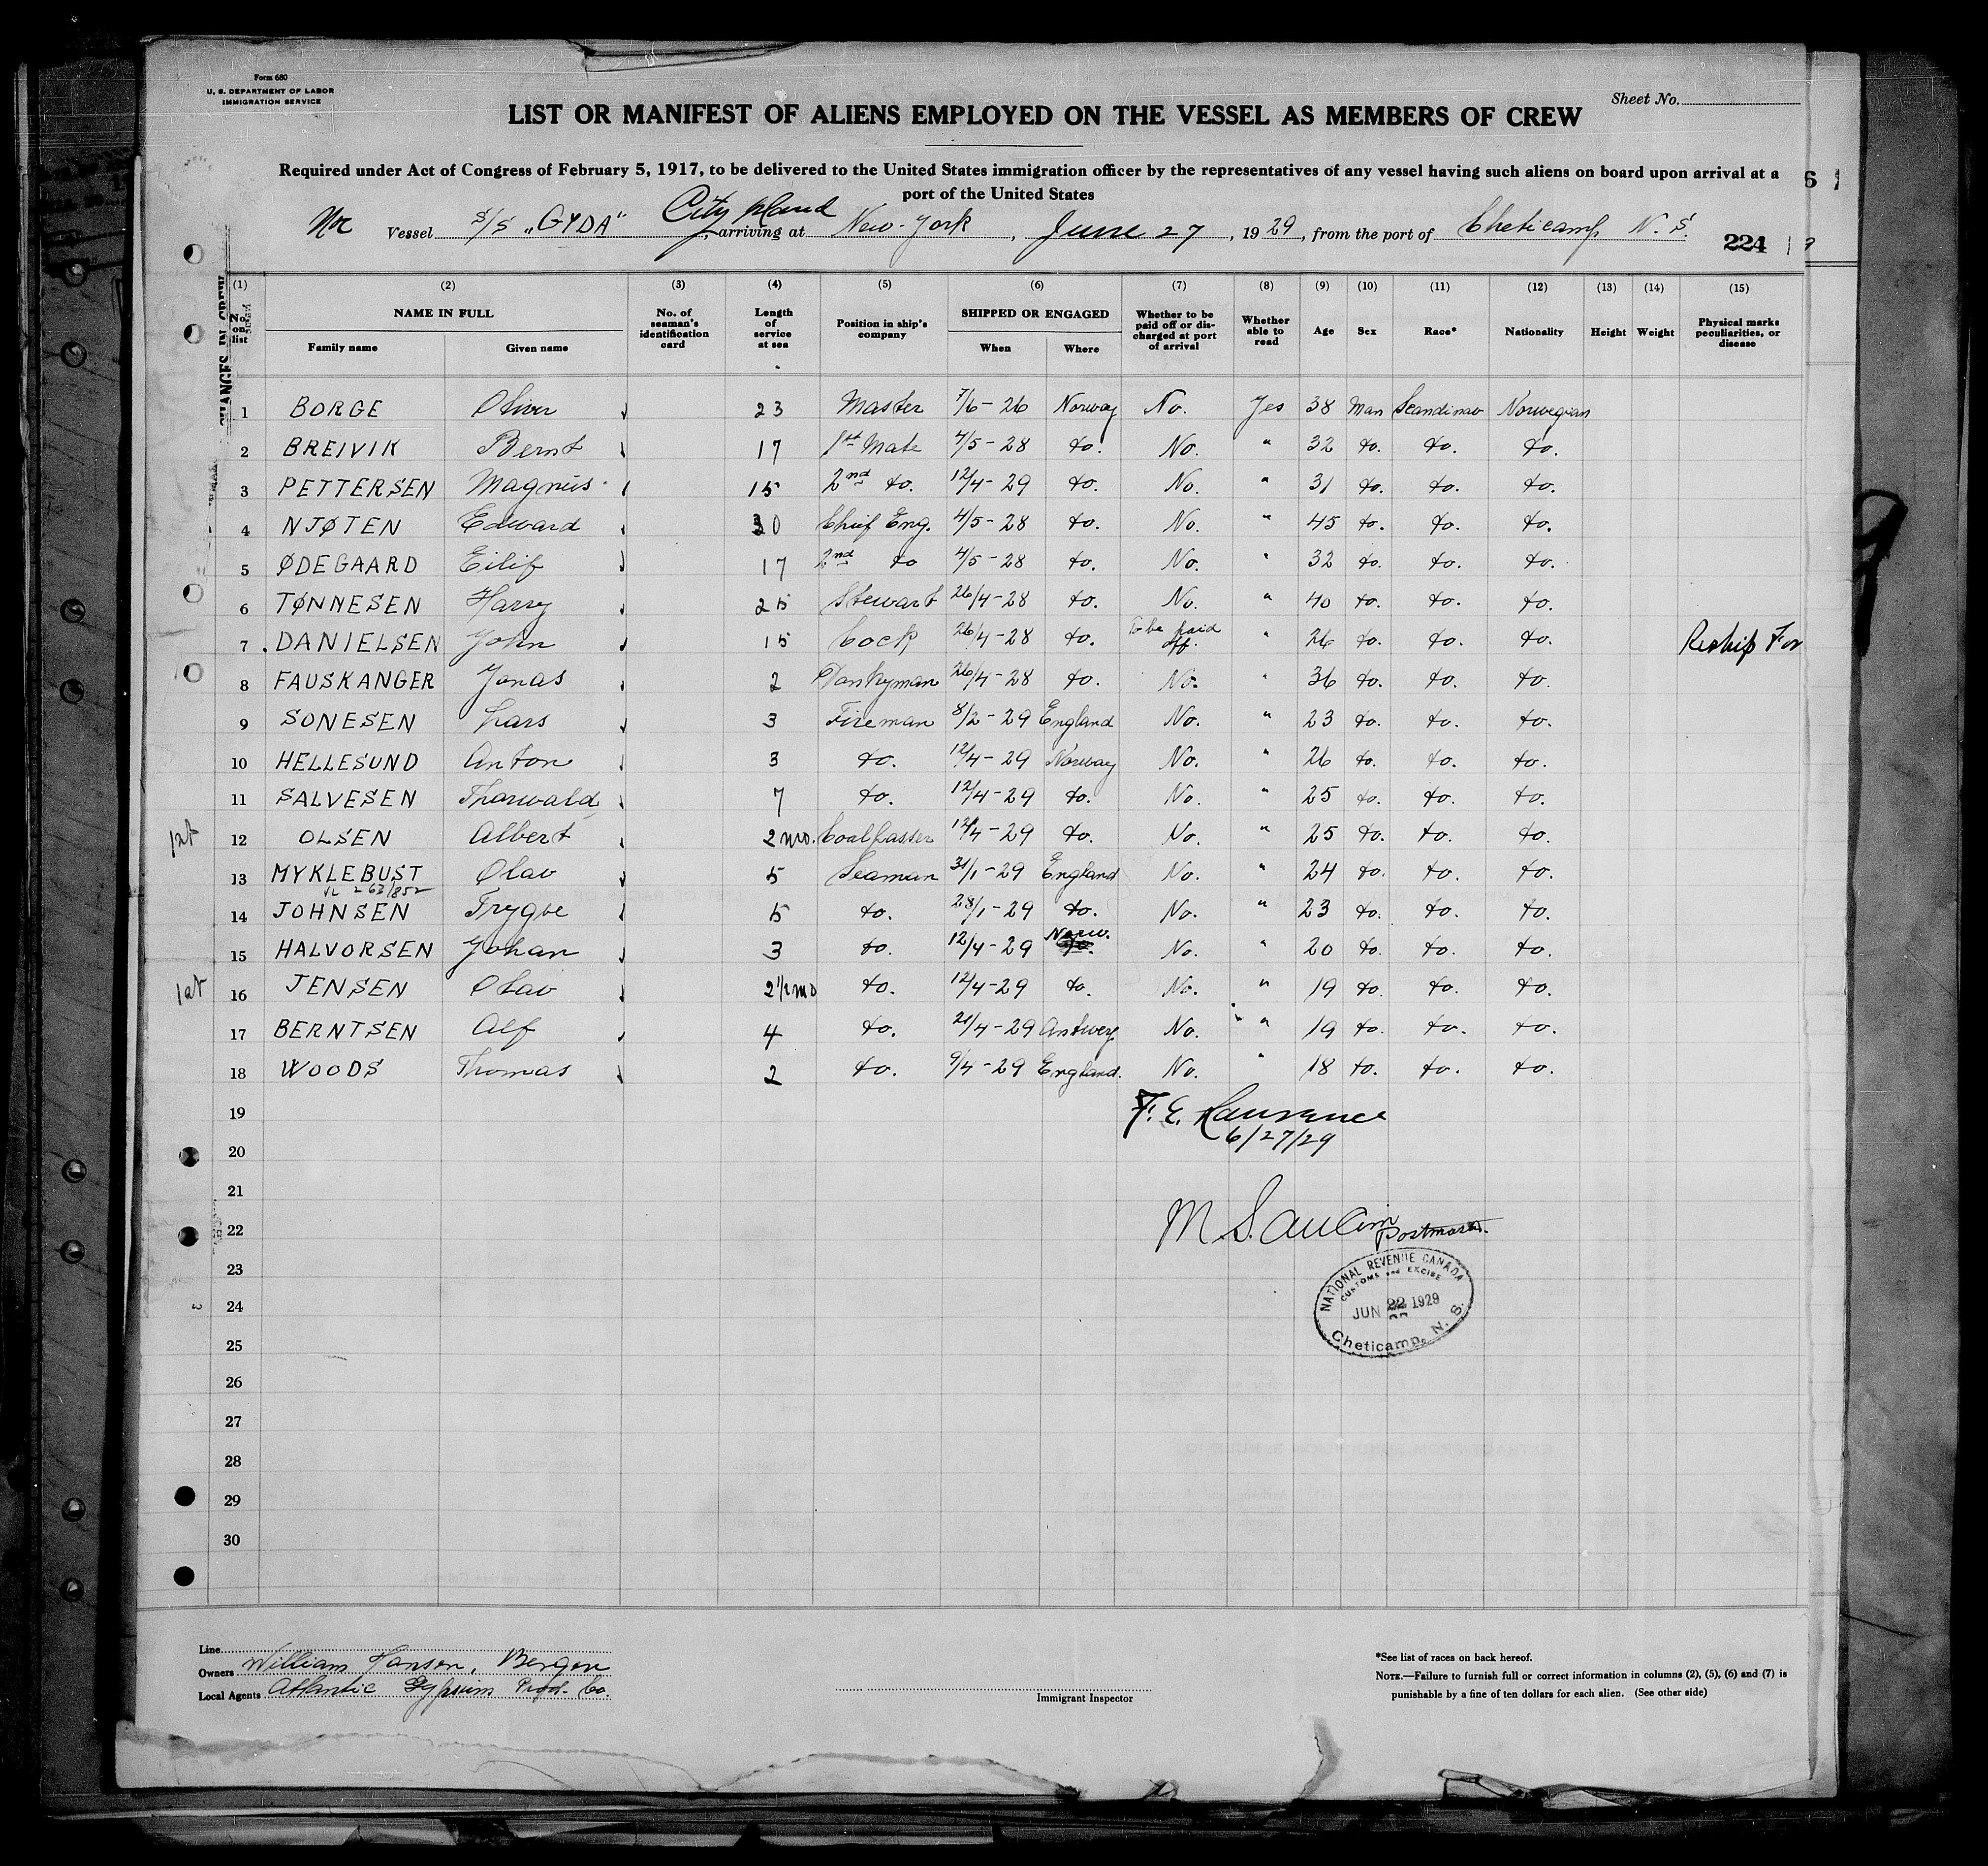 Form 680
U. S. DEPARTMENT OF LABOR
IMMIGRATION SERVICE
Sheet No.
LIST OR MANIFEST OF ALIENS EMPLOYED ON THE VESSEL AS MEMBERS OF CREW
Required under Act of Congress of February 5, 1917, to be delivered to the United States immigration officer by the representatives of any vessel having such aliens on board upon arrival at a
port of the United States
Vessel S/S "GYDA", arriving at New-York, June 27, 1929, from the port of Cheticamp N. S.
City Island
224
(1) (2) (3) (4) (5) (6) (7) (8) (9) (10) (11) (12) (13) (14) (15)
No. on list NAME IN FULL Family name Given name No. of seaman's identification card Length of service at sea Position in ship's company SHIPPED OR ENGAGED When Where Whether to be paid off or discharged at port of arrival Whether able to read Age Sex Race* Nationality Height Weight Physical marks peculiarities, or disease
CHANGES IN CREW
1 BORGE Oliver 23 Master 7/6-26 Norway No. Yes 38 Man Scandinav Norwegian
2 BREIVIK Bernt 17 1st Mate 4/5-28 do. No. " 32 do. do. do.
3 PETTERSEN Magnus 15 2nd do. 12/4-29 do. No. " 31 do. do. do.
4 NJØTEN Edward 30 Chief Eng. 4/5-28 do. No. " 45 do. do. do.
5 ØDEGAARD Eilif 17 2nd do 4/5-28 do. No. " 32 do. do. do.
6 TØNNESEN Harry 25 Stewart 26/4-28 do. No. " 40 do. do. do.
7 DANIELSEN John 15 Cock 26/4-28 do. To be paid off. " 26 do. do. do. Reship For
8 FAUSKANGER Jonas 2 Donkyman 26/4-28 do. No. " 36 do. do. do.
9 SONESEN Lars 3 Fireman 8/2-29 England No. " 23 do. do. do.
10 HELLESUND Anton 3 do. 12/4-29 Norway No. " 26 do. do. do.
11 SALVESEN Thorwald 7 do. 12/4-29 do. No. " 25 do. do. do.
1st 12 OLSEN Albert 2 mo. Coalpasser 12/4-29 do. No. " 25 do. do. do.
13 MYKLEBUST Olav 5 Seaman 31/1-29 England No. " 24 do. do. do.
VL 263/852
14 JOHNSEN Trygve 5 do. 28/1-29 do. No. " 23 do. do. do.
15 HALVORSEN Johan 3 do. 12/4-29 Norw. No. " 20 do. do. do.
1st 16 JENSEN Olav 2 1/2 mo do. 12/4-29 do. No. " 19 do. do. do.
17 BERNTSEN Alf 4 do. 21/4-29 Antwerp. No. " 19 do. do. do.
18 WOODS Thomas 2 do. 9/4-29 England. No. " 18 do. do. do.
19
F. E. Lawrence
6/27/29
20
21
22
23
NATIONAL REVENUE CANADA
CUSTOMS and EXCISE
JUN 22 1929
Cheticamp, N. S.
24
25
26
27
28
29
30
Line
Owners William Hansen, Bergen
Local Agents Atlantic Gypsum Prod. Co.
Immigrant Inspector
*See list of races on back hereof.
NOTE.—Failure to furnish full or correct information in columns (2), (5), (6) and (7) is
punishable by a fine of ten dollars for each alien. (See other side)